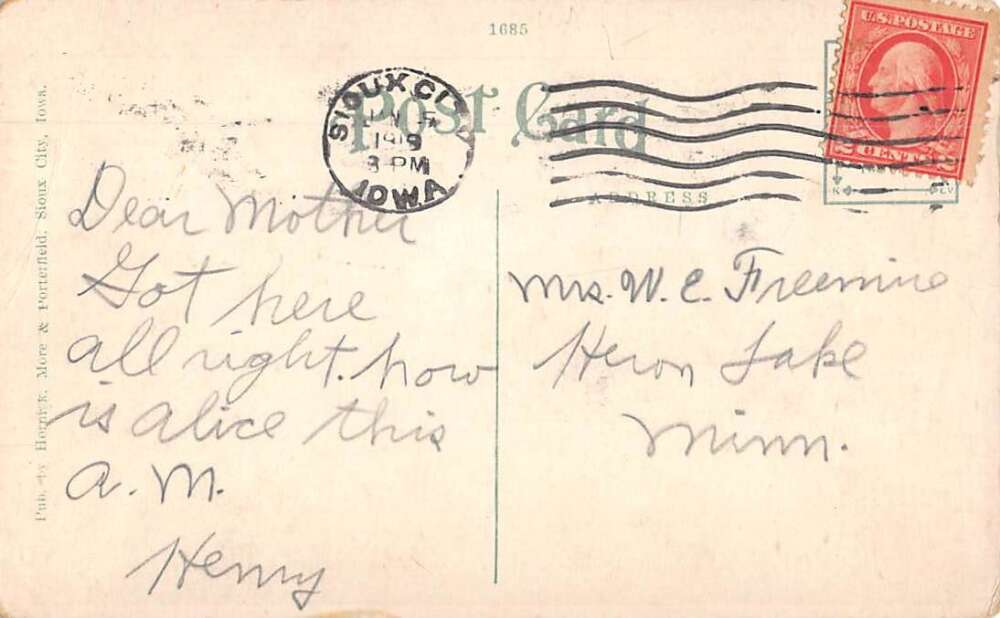 1685
Post Card
SIOUX CITY
1919
3 PM
IOWA
U.S. POSTAGE
2 CENTS 2
ADDRESS
Pub. by Hornick, More & Porterfield, Sioux City, Iowa.
Dear Mother
Got here
all right. how
is alice this
a.m.
Henry
Mrs. W. E. Freemire
Heron Lake
Minn.